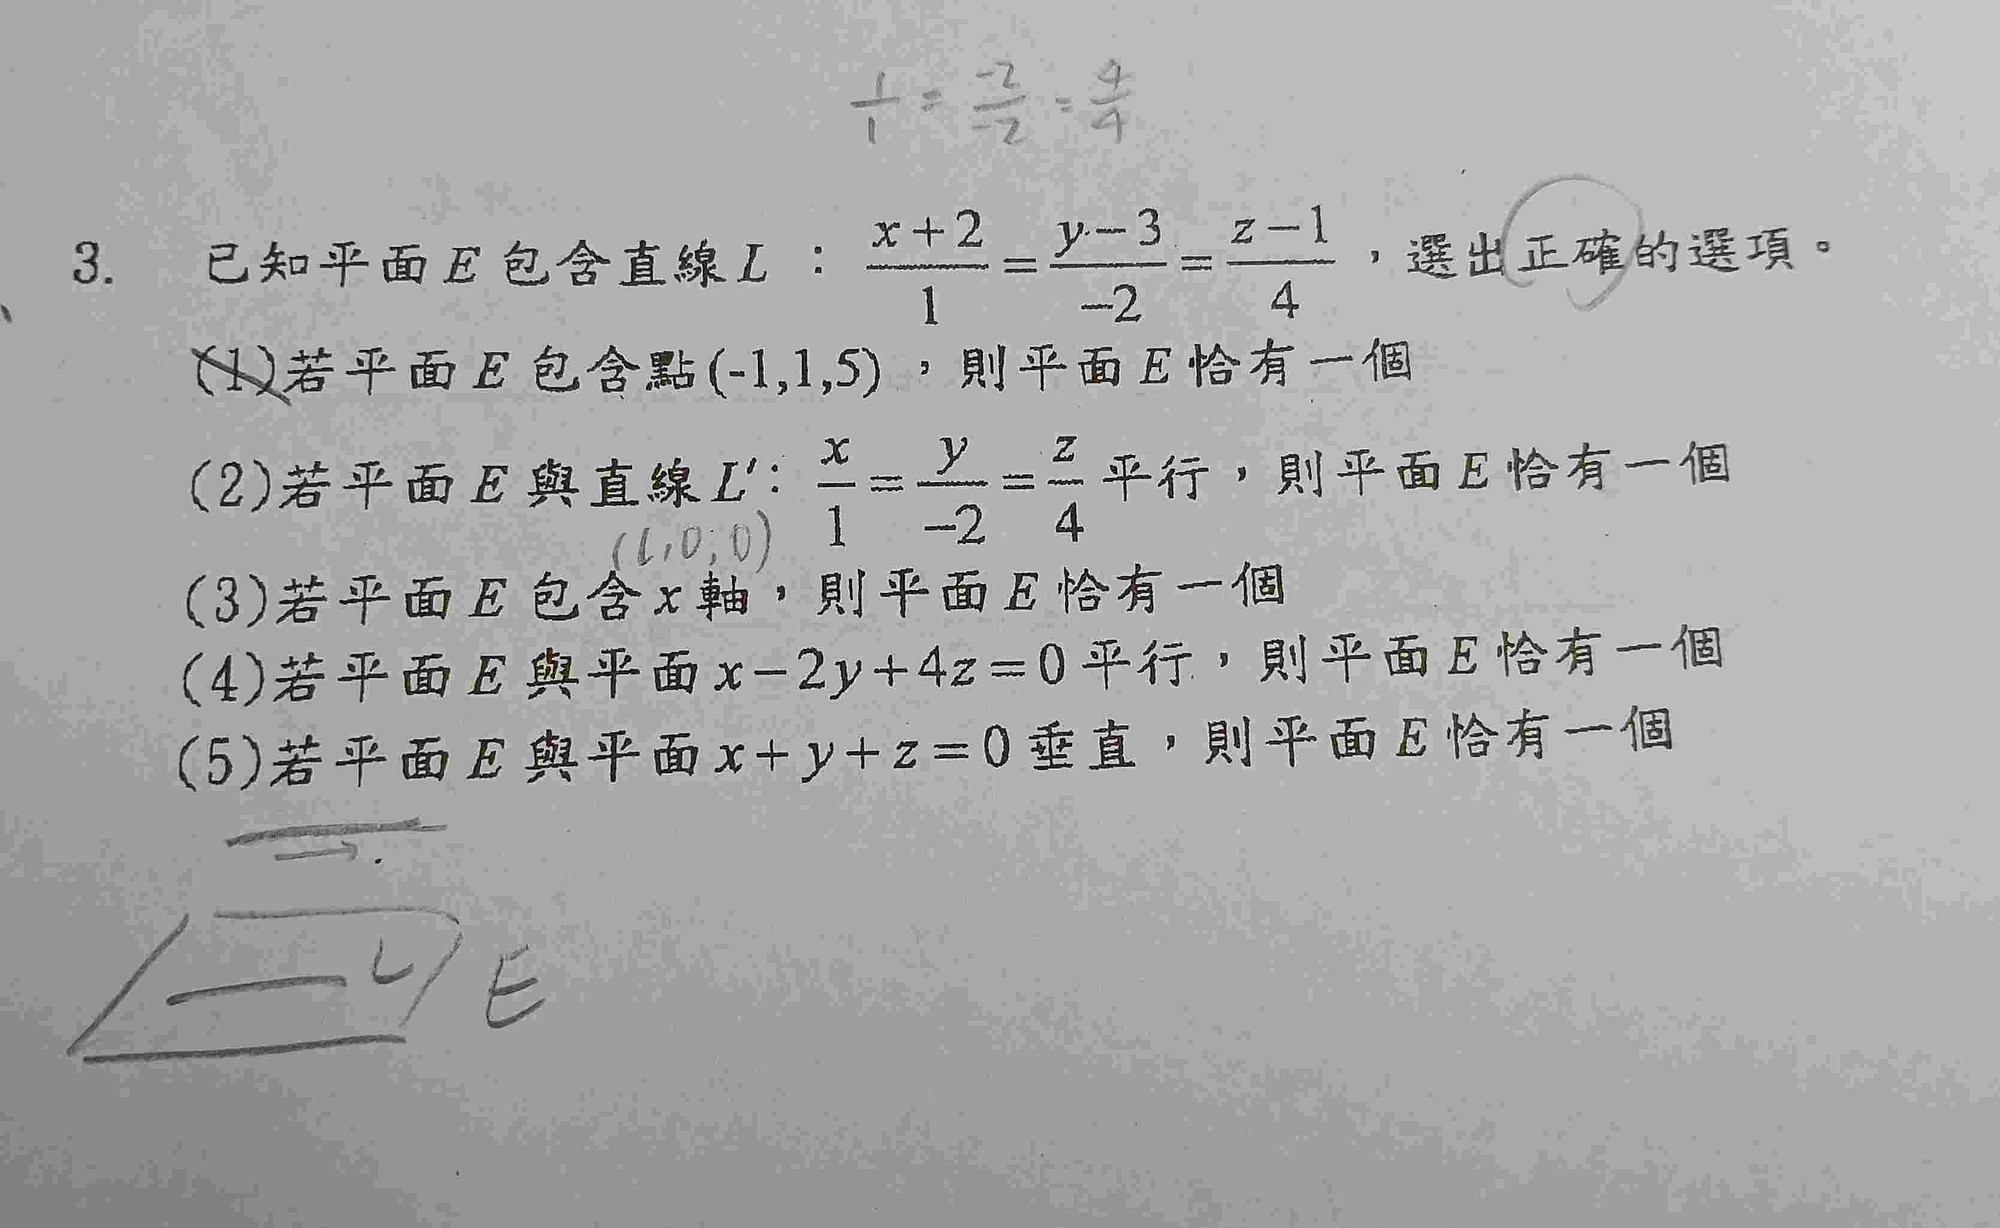 1/1 = -2/-2 = 4/4
3. 已知平面E包含直線L : (x+2)/1 = (y-3)/-2 = (z-1)/4 ，選出正確的選項。
(1)若平面E包含點(-1,1,5)，則平面E恰有一個
(2)若平面E與直線L': x/1 = y/-2 = z/4 平行，則平面E恰有一個
(1,0,0)
(3)若平面E包含x軸，則平面E恰有一個
(4)若平面E與平面x-2y+4z=0平行，則平面E恰有一個
(5)若平面E與平面x+y+z=0垂直，則平面E恰有一個
L E